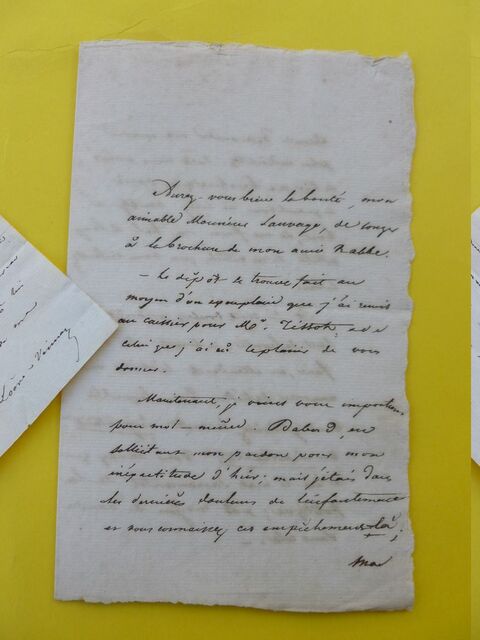 Aurez-vous bien la bonté, mon
aimable Monsieur Sauvage, de songer
à la brochure de mon ami Rabbe.
— Le dépôt se trouve fait au
moyen d'un exemplaire que j'ai remis
au caissier pour Mr. Tissot, et
celui que j'ai eu le plaisir de vous
donner.
Maintenant, je viens vous importuner
pour moi-même. D'abord, en
sollicitant mon pardon pour mon
inexactitude d'hier; mais j'étais dans
les dernières douleurs de l'enfantement
et vous connaissez ces empêchemens-là;
mad